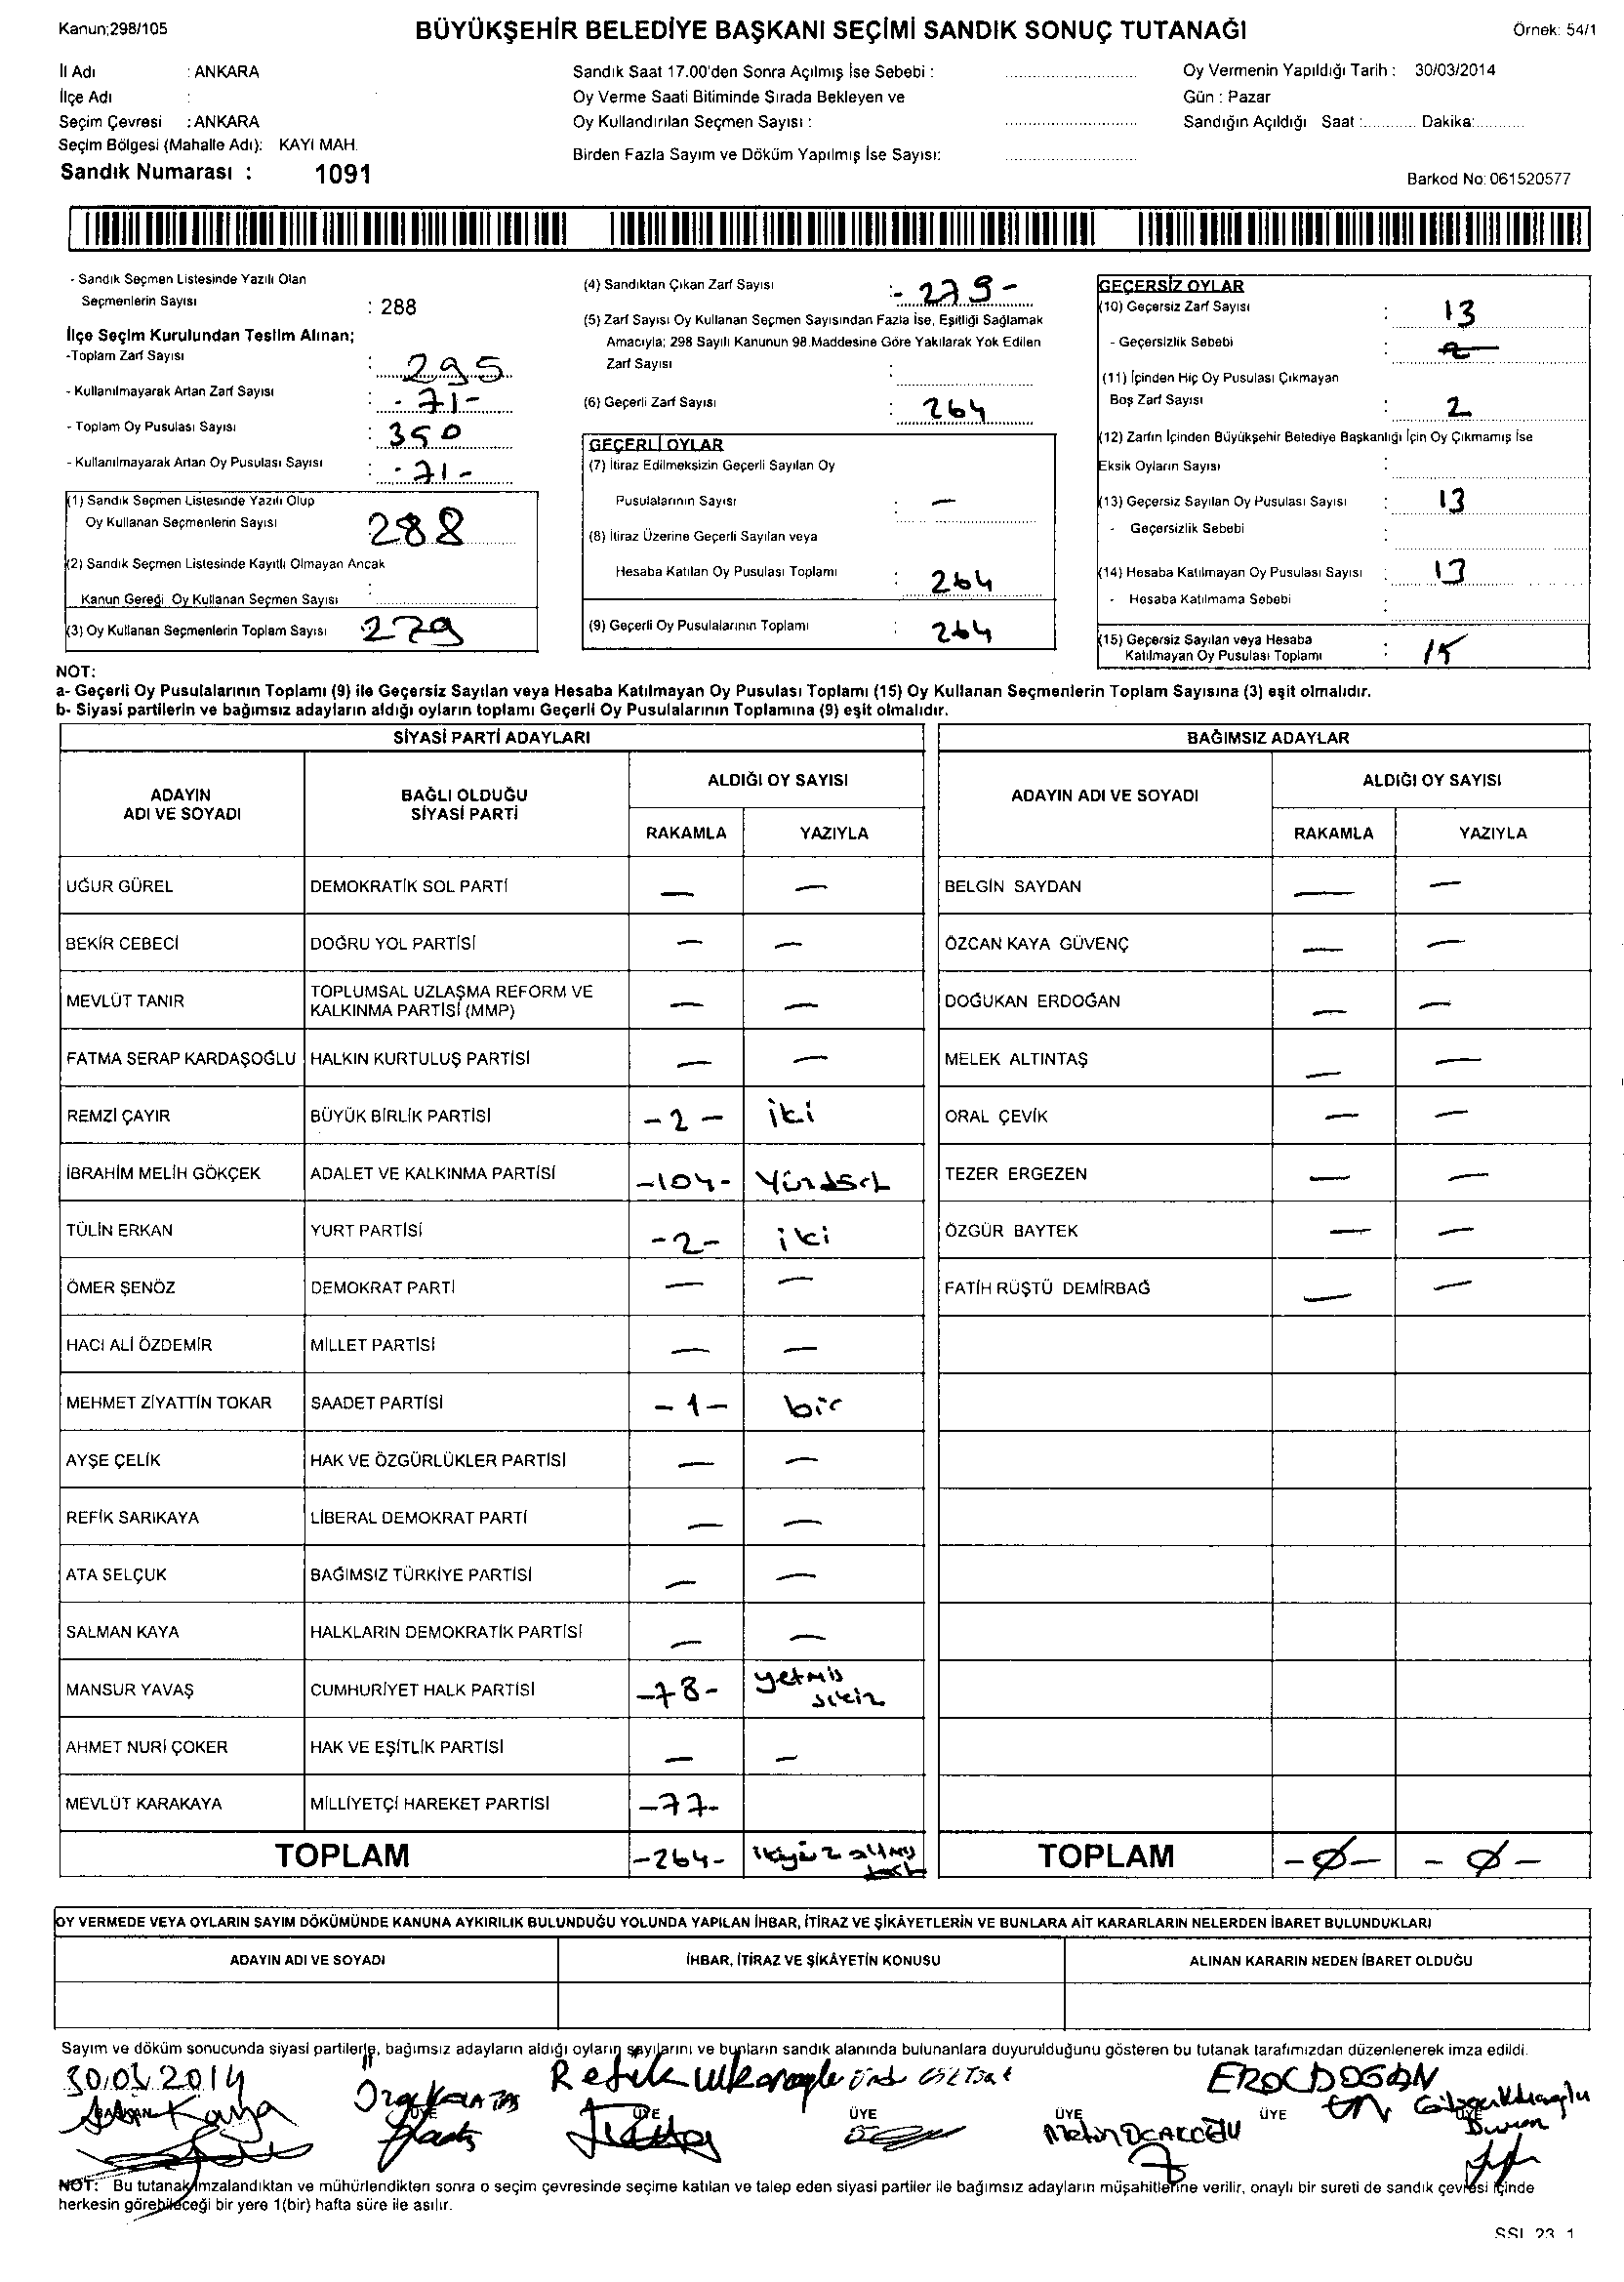 Kanun;298/105
BÜYÜKŞEHİR BELEDİYE BAŞKANI SEÇİMİ SANDIK SONUÇ TUTANAĞI
Örnek: 54/1
İl Adı : ANKARA
İlçe Adı :
Seçim Çevresi : ANKARA
Seçim Bölgesi (Mahalle Adı): KAYI MAH.
Sandık Numarası : 1091
Sandık Saat 17.00'den Sonra Açılmış İse Sebebi :
Oy Verme Saati Bitiminde Sırada Bekleyen ve
Oy Kullandırılan Seçmen Sayısı :
Birden Fazla Sayım ve Döküm Yapılmış İse Sayısı:
Oy Vermenin Yapıldığı Tarih : 30/03/2014
Gün : Pazar
Sandığın Açıldığı Saat : Dakika:
Barkod No: 061520577
- Sandık Seçmen Listesinde Yazılı Olan
Seçmenlerin Sayısı : 288
İlçe Seçim Kurulundan Teslim Alınan;
-Toplam Zarf Sayısı : 295
- Kullanılmayarak Artan Zarf Sayısı : - 71 -
- Toplam Oy Pusulası Sayısı : 350
- Kullanılmayarak Artan Oy Pusulası Sayısı : - 71 -
(1) Sandık Seçmen Listesinde Yazılı Olup
Oy Kullanan Seçmenlerin Sayısı 288
(2) Sandık Seçmen Listesinde Kayıtlı Olmayan Ancak
Kanun Gereği Oy Kullanan Seçmen Sayısı :
(3) Oy Kullanan Seçmenlerin Toplam Sayısı 279
(4) Sandıktan Çıkan Zarf Sayısı : - 279 -
(5) Zarf Sayısı Oy Kullanan Seçmen Sayısından Fazla İse, Eşitliği Sağlamak
Amacıyla; 298 Sayılı Kanunun 98.Maddesine Göre Yakılarak Yok Edilen
Zarf Sayısı :
(6) Geçerli Zarf Sayısı : 264
GEÇERLİ OYLAR
(7) İtiraz Edilmeksizin Geçerli Sayılan Oy
Pusulalarının Sayısı : —
(8) İtiraz Üzerine Geçerli Sayılan veya
Hesaba Katılan Oy Pusulası Toplamı : 264
(9) Geçerli Oy Pusulalarının Toplamı : 264
GEÇERSİZ OYLAR
(10) Geçersiz Zarf Sayısı : 13
- Geçersizlik Sebebi :
(11) İçinden Hiç Oy Pusulası Çıkmayan
Boş Zarf Sayısı : 2
(12) Zarfın İçinden Büyükşehir Belediye Başkanlığı İçin Oy Çıkmamış İse
Eksik Oyların Sayısı :
(13) Geçersiz Sayılan Oy Pusulası Sayısı : 13
- Geçersizlik Sebebi :
(14) Hesaba Katılmayan Oy Pusulası Sayısı : 13
- Hesaba Katılmama Sebebi :
(15) Geçersiz Sayılan veya Hesaba
Katılmayan Oy Pusulası Toplamı : 15
NOT:
a- Geçerli Oy Pusulalarının Toplamı (9) ile Geçersiz Sayılan veya Hesaba Katılmayan Oy Pusulası Toplamı (15) Oy Kullanan Seçmenlerin Toplam Sayısına (3) eşit olmalıdır.
b- Siyasi partilerin ve bağımsız adayların aldığı oyların toplamı Geçerli Oy Pusulalarının Toplamına (9) eşit olmalıdır.
SİYASİ PARTİ ADAYLARI
ADAYIN ADI VE SOYADI
BAĞLI OLDUĞU SİYASİ PARTİ
ALDIĞI OY SAYISI
RAKAMLA YAZIYLA
UĞUR GÜREL DEMOKRATİK SOL PARTİ — —
BEKİR CEBECİ DOĞRU YOL PARTİSİ — —
MEVLÜT TANIR TOPLUMSAL UZLAŞMA REFORM VE KALKINMA PARTİSİ (MMP) — —
FATMA SERAP KARDAŞOĞLU HALKIN KURTULUŞ PARTİSİ — —
REMZİ ÇAYIR BÜYÜK BİRLİK PARTİSİ - 2 - iki
İBRAHİM MELİH GÖKÇEK ADALET VE KALKINMA PARTİSİ -104-
TÜLİN ERKAN YURT PARTİSİ - 2 - iki
ÖMER ŞENÖZ DEMOKRAT PARTİ — —
HACI ALİ ÖZDEMİR MİLLET PARTİSİ — —
MEHMET ZİYATTİN TOKAR SAADET PARTİSİ - 1 - bir
AYŞE ÇELİK HAK VE ÖZGÜRLÜKLER PARTİSİ — —
REFİK SARIKAYA LİBERAL DEMOKRAT PARTİ — —
ATA SELÇUK BAĞIMSIZ TÜRKİYE PARTİSİ — —
SALMAN KAYA HALKLARIN DEMOKRATİK PARTİSİ — —
MANSUR YAVAŞ CUMHURİYET HALK PARTİSİ -78- yetmiş sekiz
AHMET NURİ ÇOKER HAK VE EŞİTLİK PARTİSİ — —
MEVLÜT KARAKAYA MİLLİYETÇİ HAREKET PARTİSİ -77-
TOPLAM -264- ikiyüz altmış
BAĞIMSIZ ADAYLAR
ADAYIN ADI VE SOYADI
ALDIĞI OY SAYISI
RAKAMLA YAZIYLA
BELGİN SAYDAN — —
ÖZCAN KAYA GÜVENÇ — —
DOĞUKAN ERDOĞAN — —
MELEK ALTINTAŞ — —
ORAL ÇEVİK — —
TEZER ERGEZEN — —
ÖZGÜR BAYTEK — —
FATİH RÜŞTÜ DEMİRBAĞ — —
TOPLAM -Ø- -Ø-
OY VERMEDE VEYA OYLARIN SAYIM DÖKÜMÜNDE KANUNA AYKIRILIK BULUNDUĞU YOLUNDA YAPILAN İHBAR, İTİRAZ VE ŞİKÂYETLERİN VE BUNLARA AİT KARARLARIN NELERDEN İBARET BULUNDUKLARI
ADAYIN ADI VE SOYADI
İHBAR, İTİRAZ VE ŞİKÂYETİN KONUSU
ALINAN KARARIN NEDEN İBARET OLDUĞU
Sayım ve döküm sonucunda siyasi partilerle, bağımsız adayların aldığı oyların sayılarını ve bunların sandık alanında bulunanlara duyurulduğunu gösteren bu tutanak tarafımızdan düzenlenerek imza edildi.
30.03.2014
Refik
EROL DOGAN
BAŞKAN Kaya
ÜYE ÜYE ÜYE ÜYE ÜYE ÜYE
Metin OCAKCOĞLU
NOT: Bu tutanak imzalandıktan ve mühürlendikten sonra o seçim çevresinde seçime katılan ve talep eden siyasi partiler ile bağımsız adayların müşahitlerine verilir, onaylı bir sureti de sandık çevresi içinde
herkesin görebileceği bir yere 1(bir) hafta süre ile asılır.